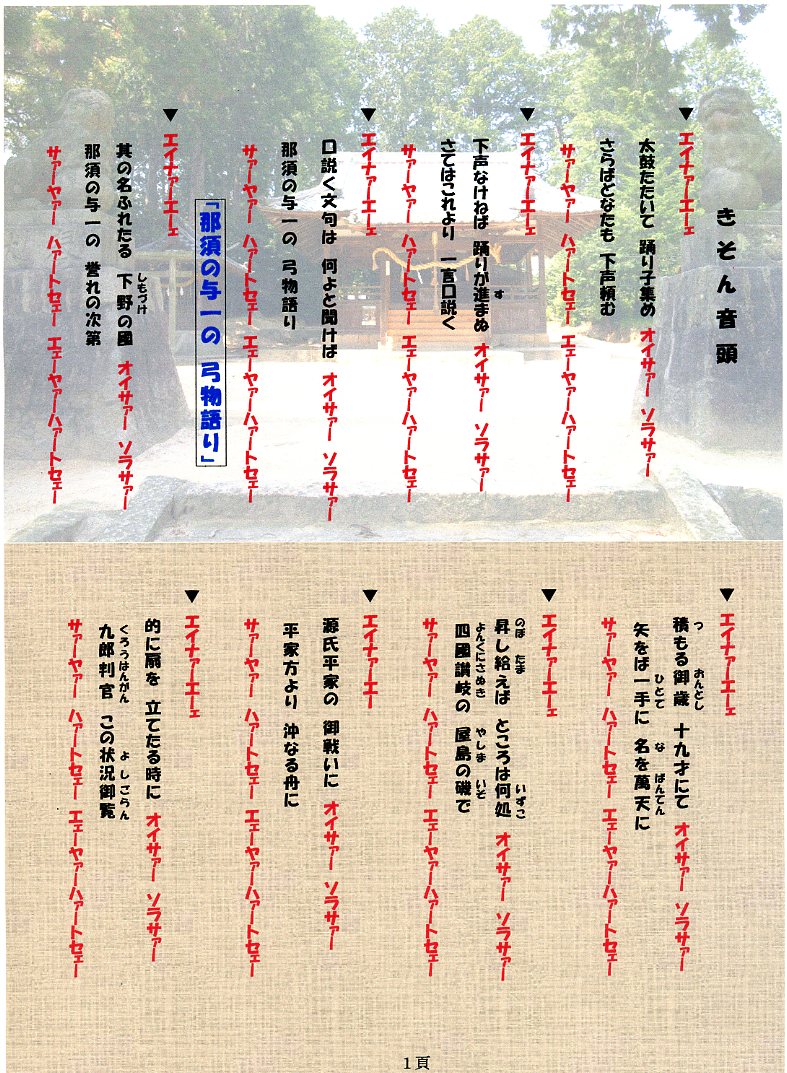 きそん音頭
▼エイナァーエーェ
太鼓たたいて 踊り子集め オイサァー ソラサァー
さらばどなたも 下声頼む
サァーヤァー ハァートセェー エェーヤァーハァートセェー
▼エイナァーエーェ
す
下声なけねば 踊りが進まぬ オイサァー ソラサァー
さてはこれより 一言口説く
サァーヤァー ハァートセェー エェーヤァーハァートセェー
▼エイナァーエーェ
口説く文句は 何よと聞けば オイサァー ソラサァー
那須の与一の 弓物語り
サァーヤァー ハァートセェー エェーヤァーハァートセェー
「那須の与一の 弓物語り」
▼エイナァーエーェ
しもづけ
其の名ふれたる 下野の國 オイサァー ソラサァー
那須の与一の 誉れの次第
サァーヤァー ハァートセェー エェーヤァーハァートセェー
▼エイナァーエーェ
つ おんとし
積もる御歳 十九才にて オイサァー ソラサァー
ひとて な ばんてん
矢をば一手に 名を萬天に
サァーヤァー ハァートセェー エェーヤァーハァートセェー
▼エイナァーエーェ
のぼ たま いずこ
昇し給えば ところは何処 オイサァー ソラサァー
よんくにさぬき やしま いそ
四國讃岐の 屋島の磯で
サァーヤァー ハァートセェー エェーヤァーハァートセェー
▼エイナァーエー
源氏平家の 御戦いに オイサァー ソラサァー
平家方より 沖なる舟に
サァーヤァー ハァートセェー エェーヤァーハァートセェー
▼エイナァーエーェ
的に扇を 立てたる時に オイサァー ソラサァー
くろうはんがん よしごらん
九郎判官 この状況御覧
サァーヤァー ハァートセェー エェーヤァーハァートセェー
1頁